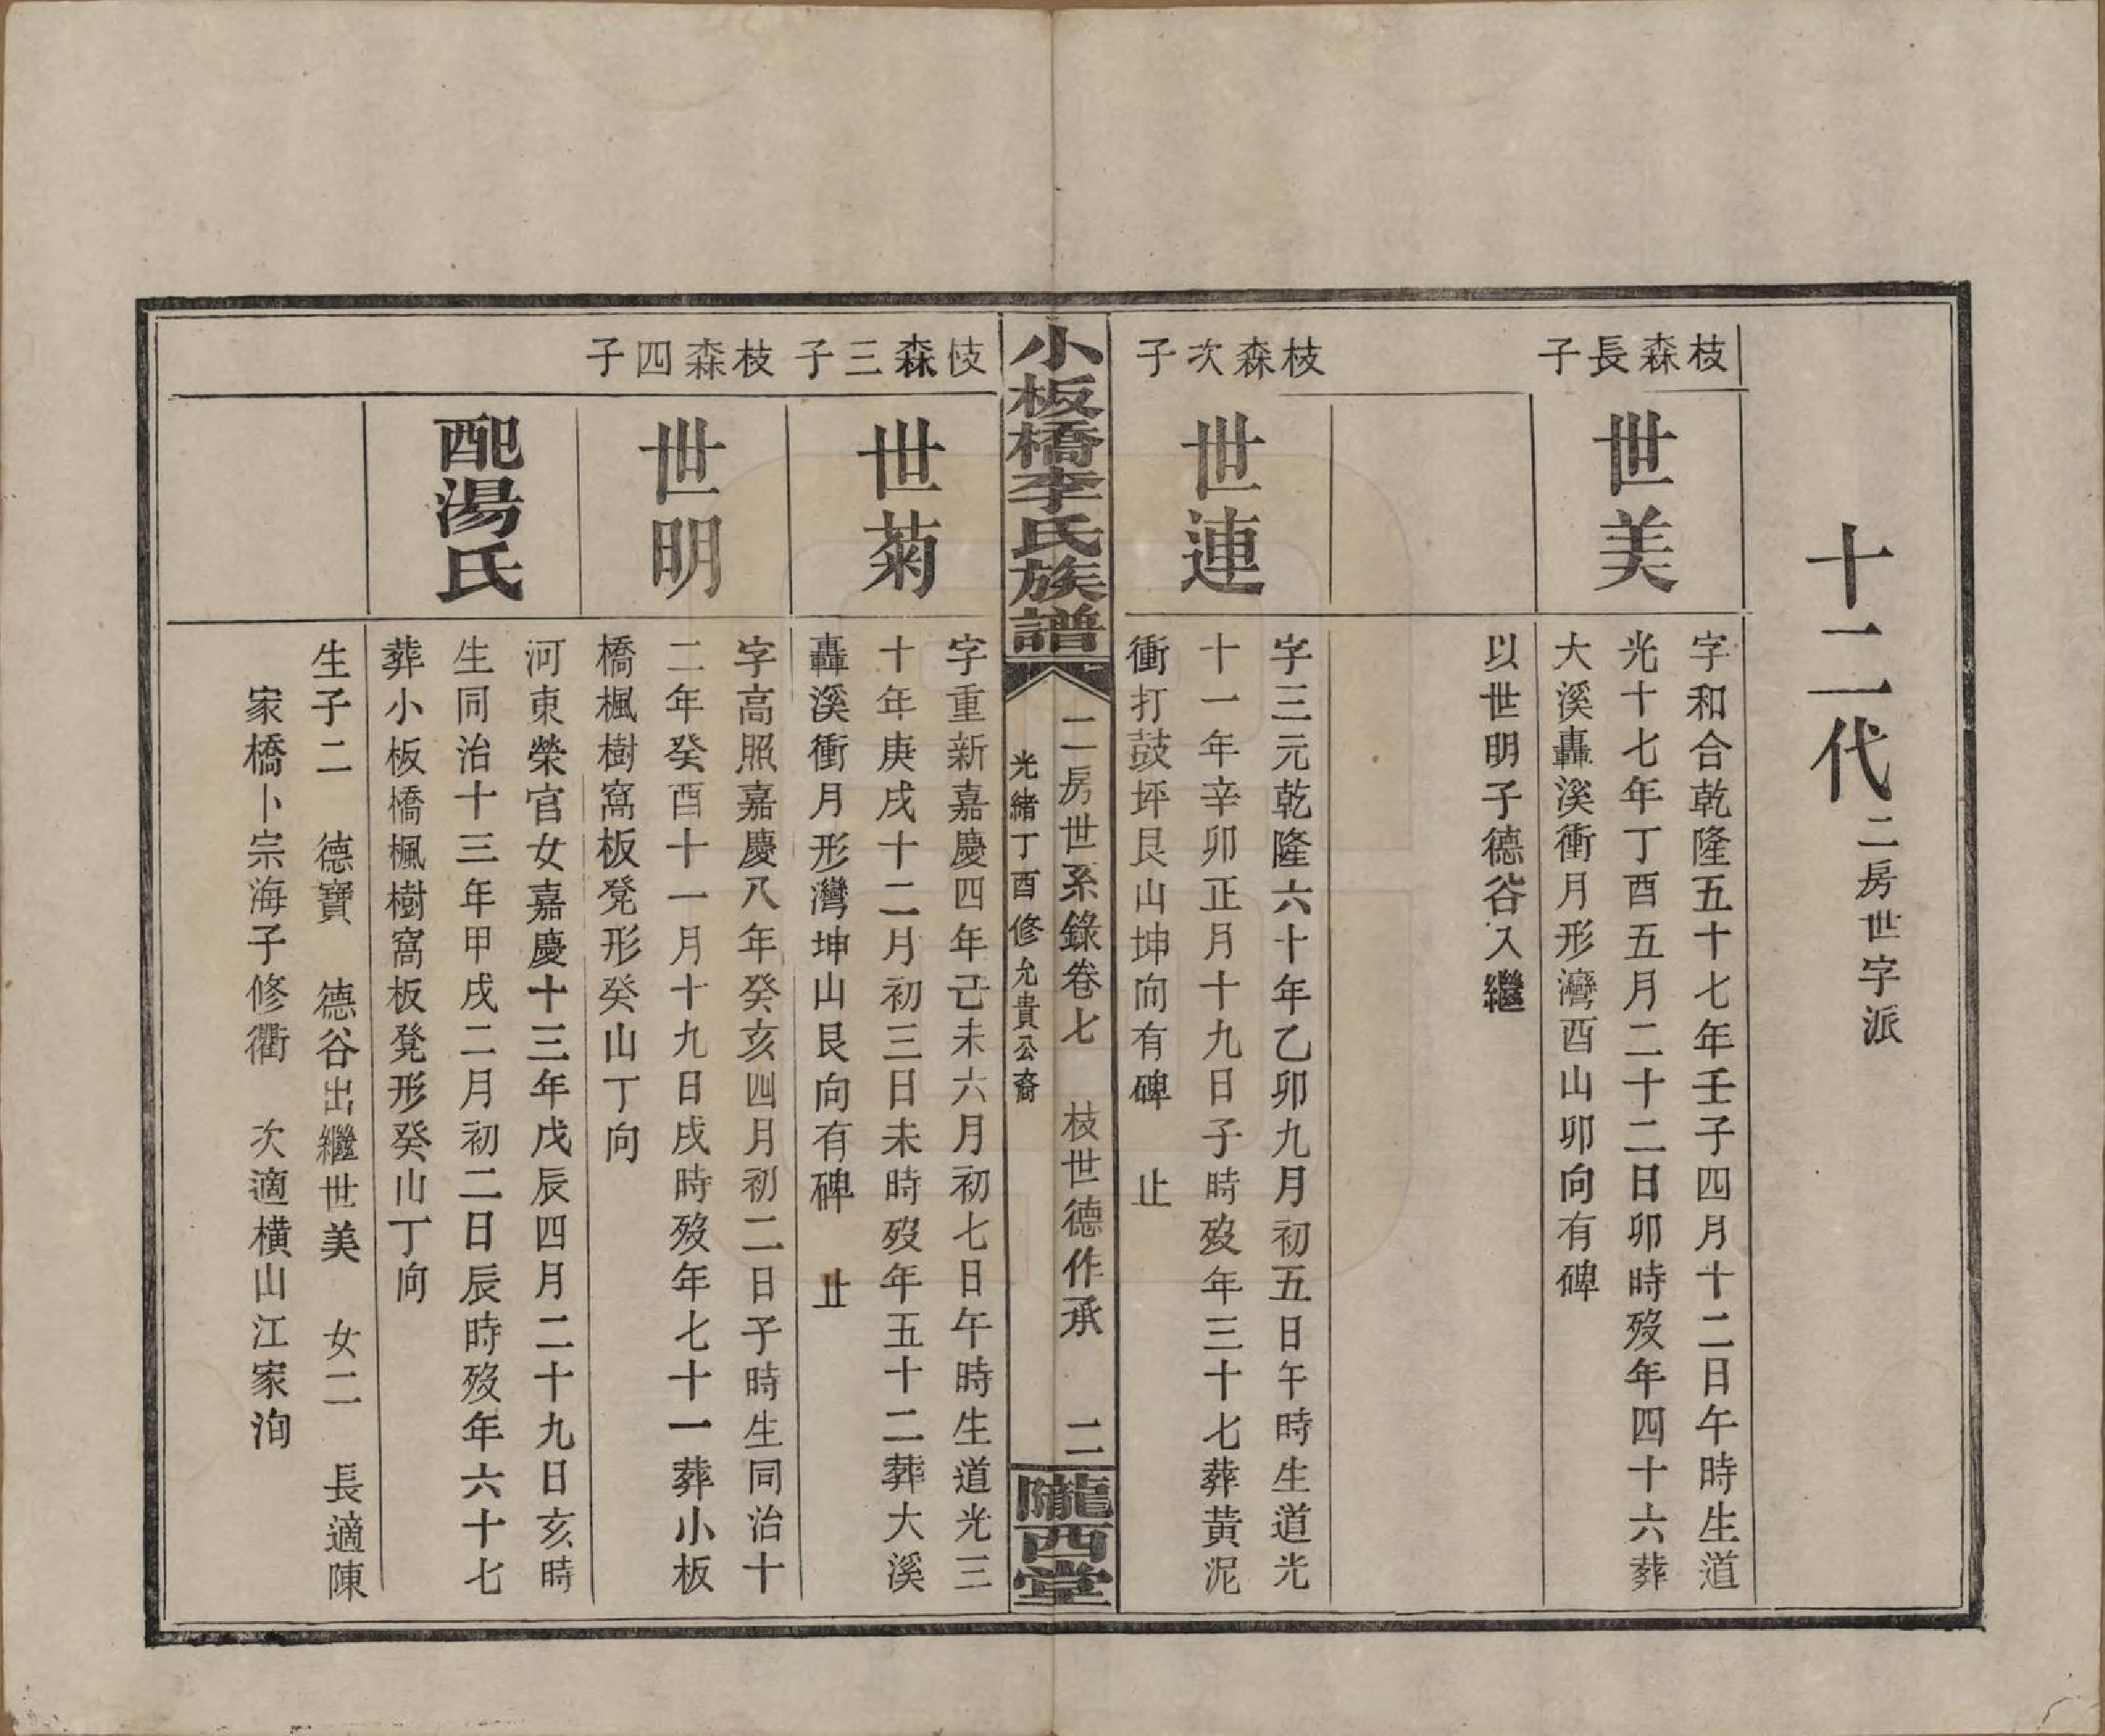 十二代 二房世字派
枝森長子
世美
字和合乾隆五十七年壬子四月十二日午時生道
光十七年丁酉五月二十二日卯時歿年四十六葬
大溪轟溪衝月形灣酉山卯向有碑
以世明子德谷入繼
枝森次子
世連
字三元乾隆六十年乙卯九月初五日午時生道光
十一年辛卯正月十九日子時歿年三十七葬黃泥
衝打鼓坪艮山坤向有碑 止
小板橋李氏族譜
二房世系錄卷七 枝世德作承 二
光緒丁酉修允貴公裔
隴西堂
枝森三子
世菊
字重新嘉慶四年己未六月初七日午時生道光三
十年庚戌十二月初三日未時歿年五十二葬大溪
轟溪衝月形灣坤山艮向有碑 止
枝森四子
世明
字高照嘉慶八年癸亥四月初二日子時生同治十
二年癸酉十一月十九日戌時歿年七十一葬小板
橋楓樹窩板凳形癸山丁向
配湯氏
河東榮官女嘉慶十三年戊辰四月二十九日亥時
生同治十三年甲戌二月初二日辰時歿年六十七
葬小板橋楓樹窩板凳形癸山丁向
生子二 德寶 德谷出繼世美 女二 長適陳
家橋卜宗海子修衢 次適橫山江家洵